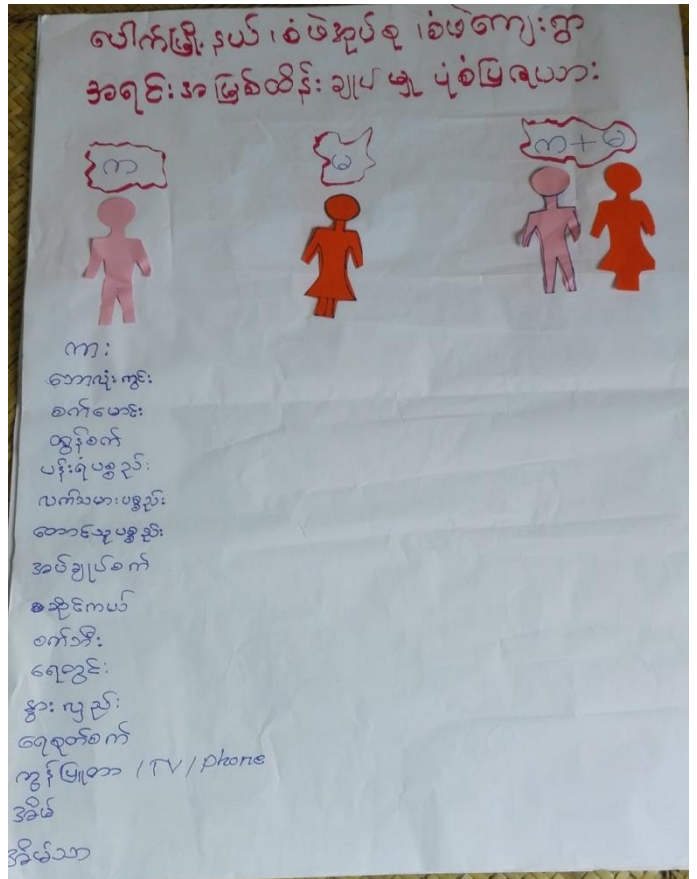 ပေါက်မြို့နယ်၊ စံဖဲအုပ်စု၊ စံဖဲကျေးရွာ
အရင်းအမြစ်ထိန်းချုပ်မှု ပုံစံပြဇယား
က မ က+မ
ကား
ဘောလုံးကွင်း
စက်မောင်း
ထွန်စက်
ပန်းရံပစ္စည်း
လက်သမားပစ္စည်း
တောင်သူပစ္စည်း
အပ်ချုပ်စက်
ဆိုင်ကယ်
စက်ဘီး
ရေတွင်း
နွားလှည်း
ရေစုတ်စက်
ကွန်ပြူတာ /TV/phone
အိမ်
အိမ်သာ